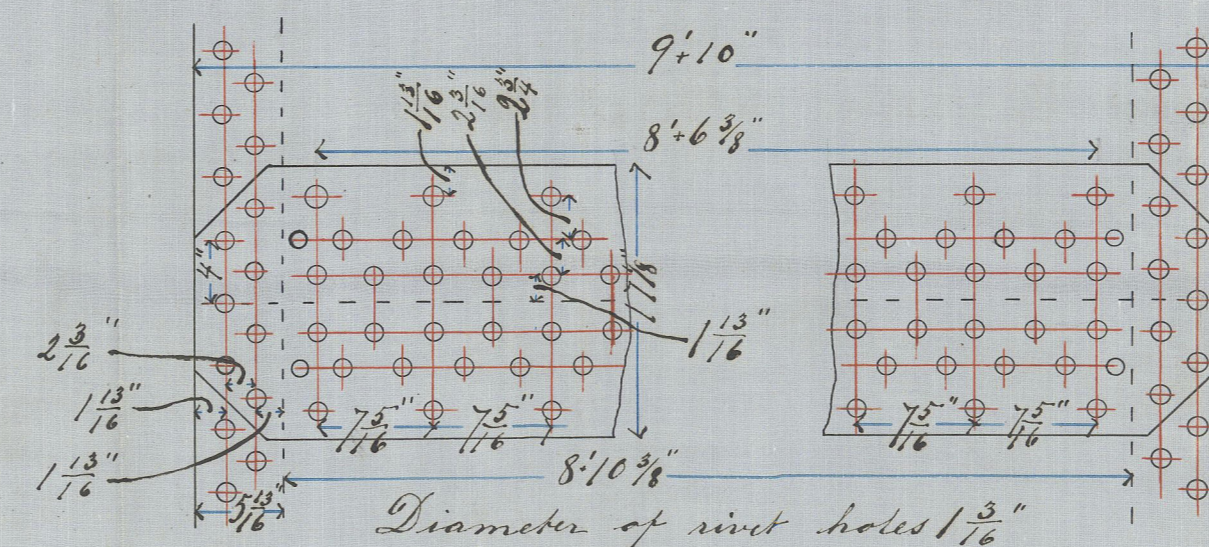 9'+10"
1 13/16"
2 3/16"
2 3/4"
8'+6 3/8"
4"
17 7/8"
2 3/16"
1 13/16"
1 13/16"
1 13/16"
7 5/16"
7 5/16"
7 5/16"
7 5/16"
8'10 3/8"
5 13/16"
Diameter of rivet holes 1 3/16"